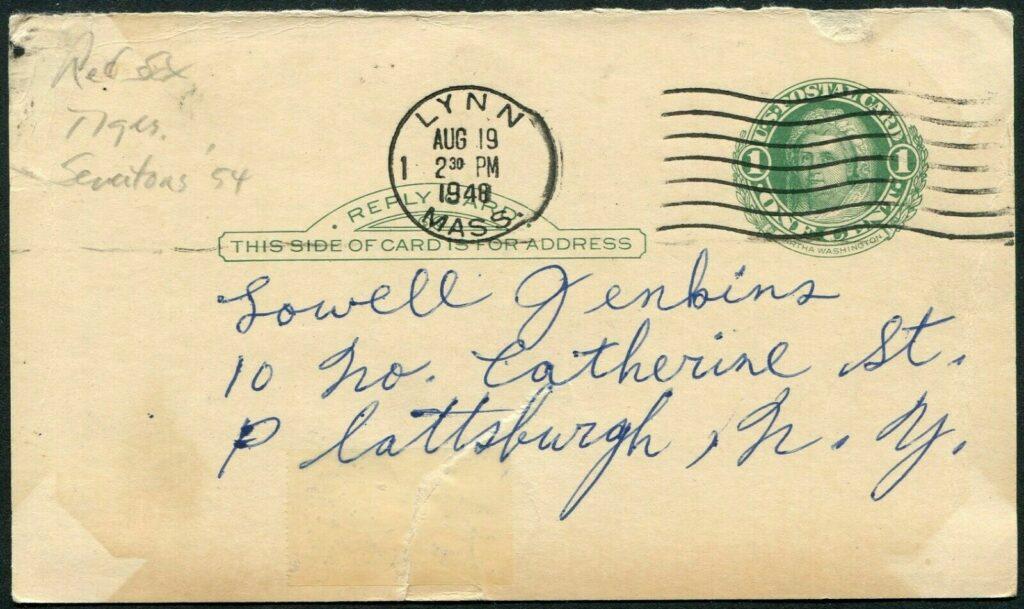 Red Sox
Tigers.
Senators '54
LYNN
AUG 19
1 2 30 PM
1948
MASS.
U.S. POSTAL CARD
1 1
ONE CENT
MARTHA WASHINGTON
REPLY CARD
THIS SIDE OF CARD IS FOR ADDRESS
Lowell Jenkins
10 No. Catherine St.
Plattsburgh, N. Y.